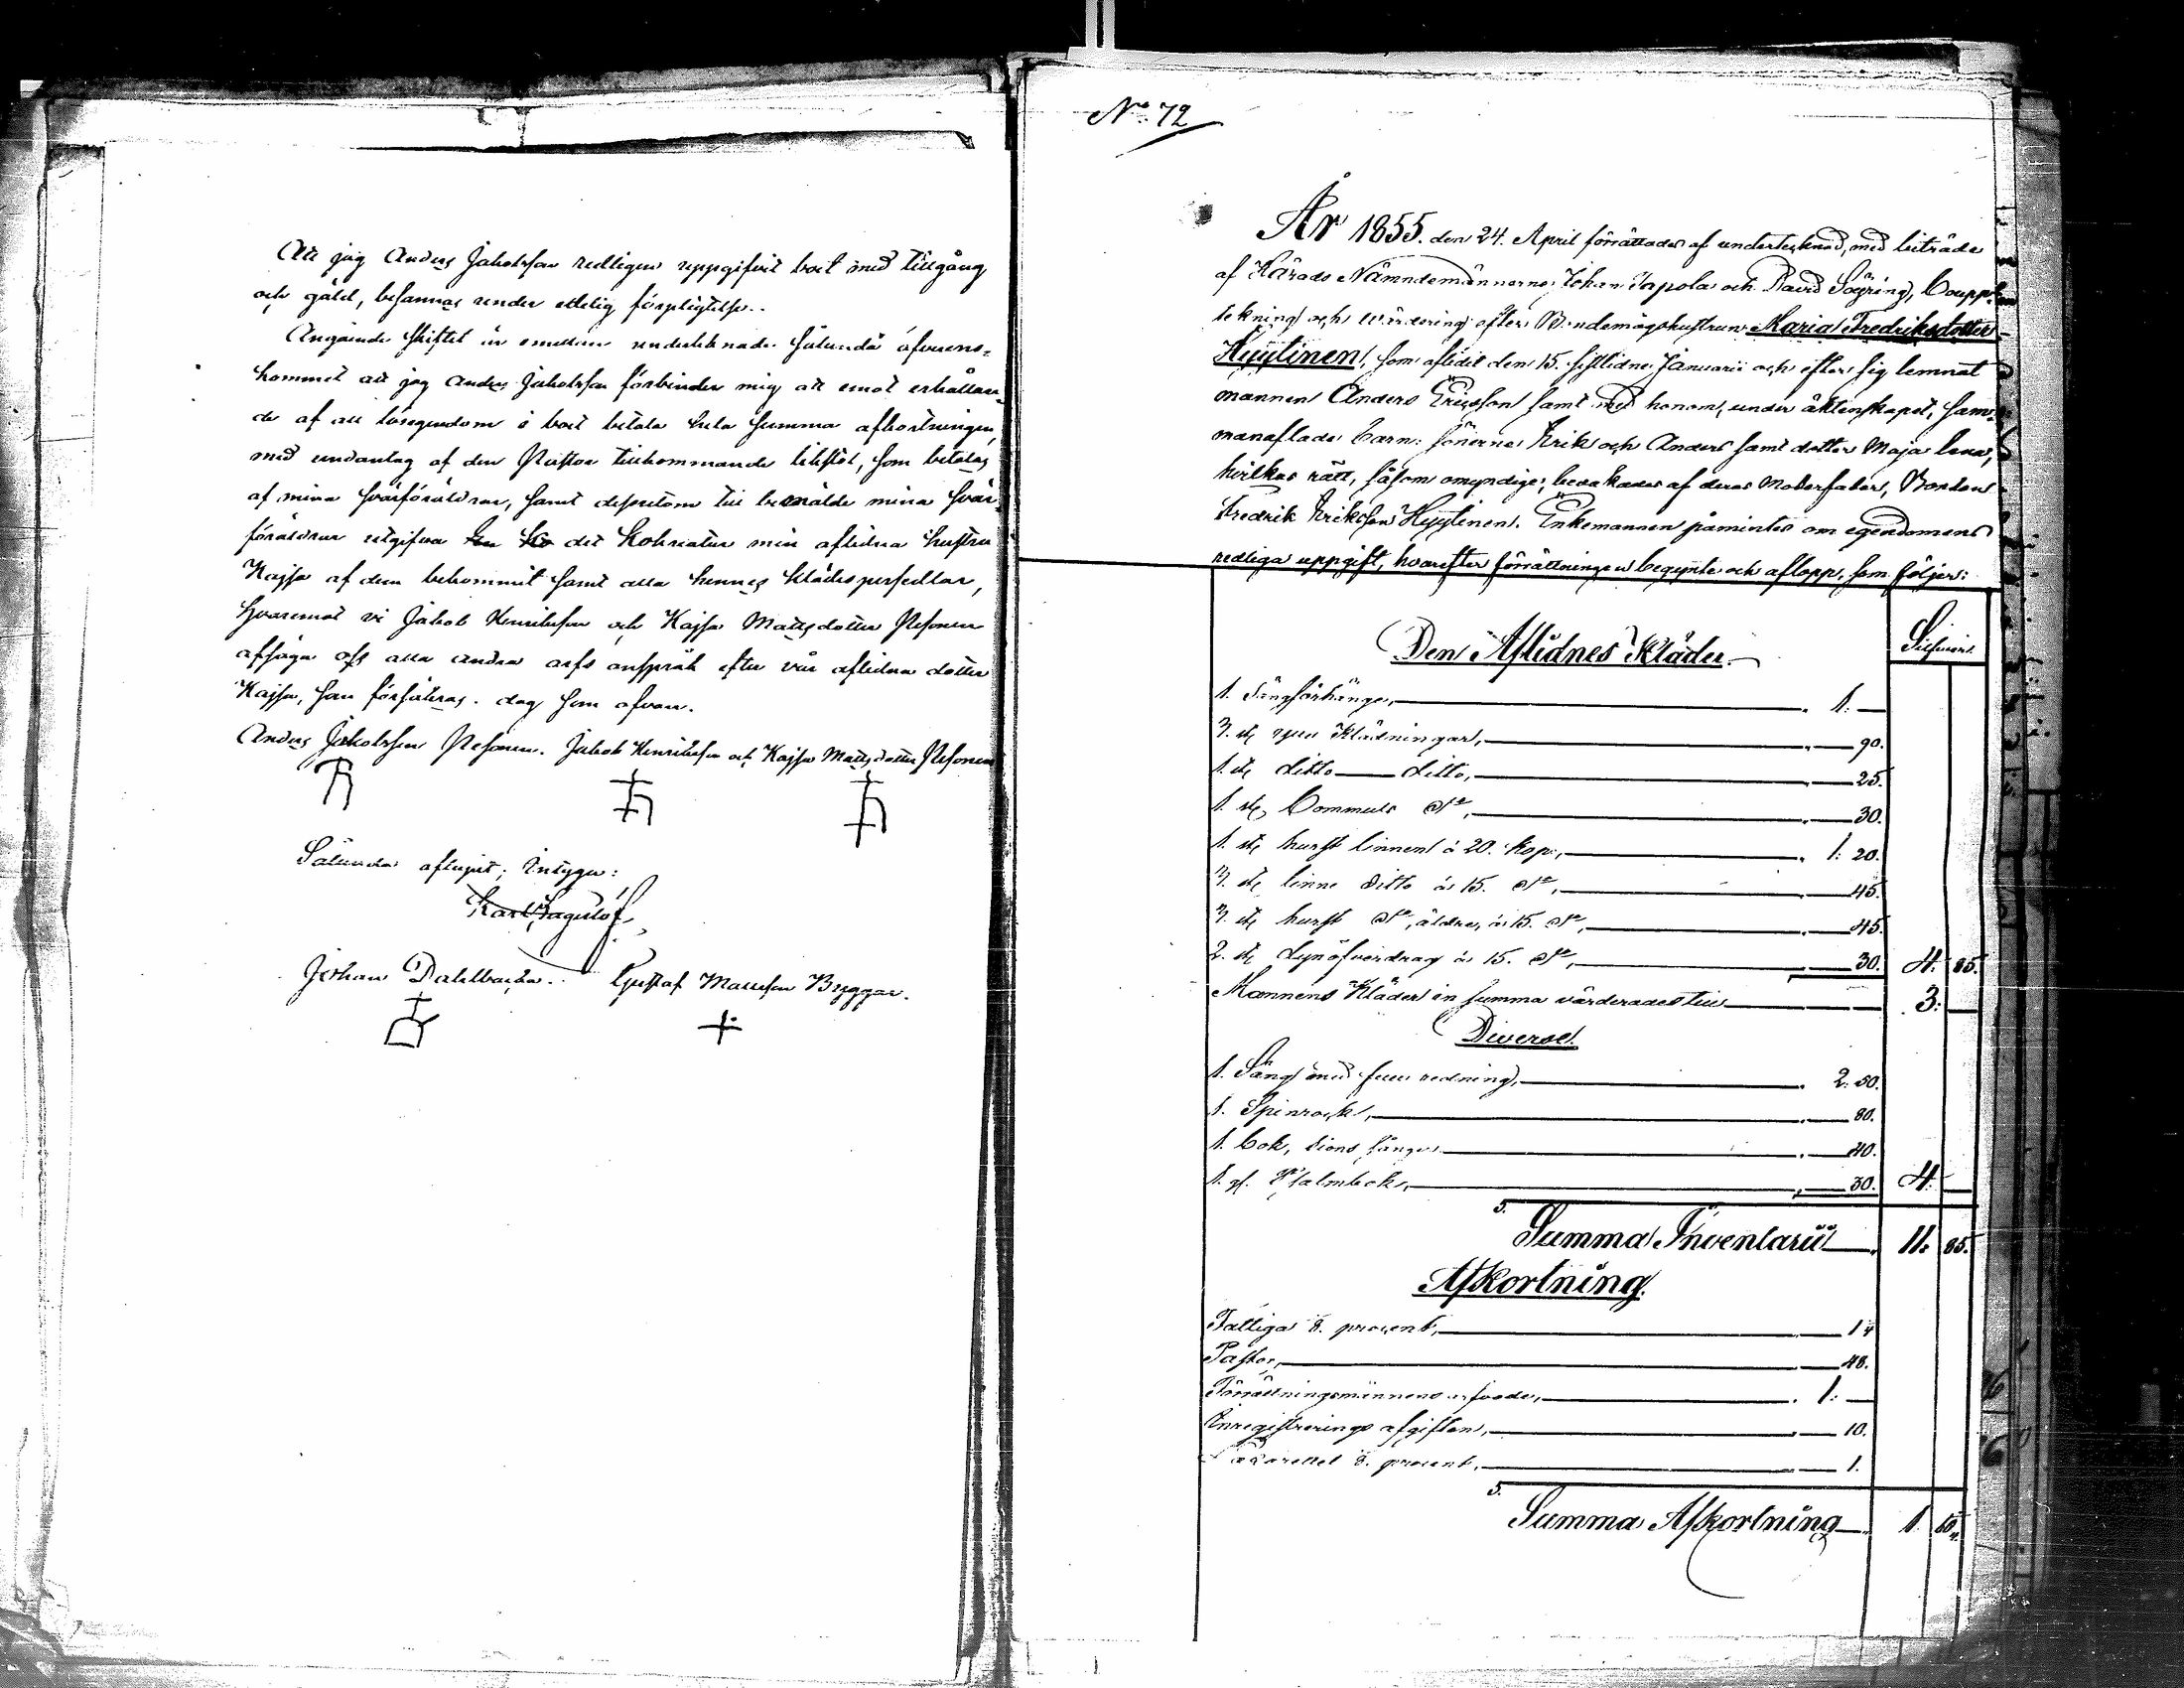 Att jag Anders Jakobsson redligen uppgifvit boet med tillgång
och gäld, besannas under edelig förpligtelse..
Angående skiftet är emellan undertecknade sålunda öfverens-
kommet att jag Anders Jakobsson förbinder mig att emot erhållan-
de af all lösegendom i boet betala hela summa afkortningen,
med undantag af den Pastor tillkommande likstol, som betalas
af mina svärföräldrar, samt dessutom till bemälde mina svär-
föräldrar utgifva det Kokreatur min aflidna hustru
Kajsa af dem bekommit samt alla hennes klädespersedlar,
hvaremot vi Jakob Henriksson och Kajsa Mattsdotter
afsäga oss alla andra arfs anspråk efter vår aflidna dotter
Kajsa, som försäkras. dag som ofvan.
Anders Jakobsson Jakob Henriksson och Kajsa Mattsdotter
Sålunda aflupit; intyga:
Karl
Johan Dahlbacka. Gustaf Mattsson Byggar.
No 72
År 1855. den 24. April förrättades af undertecknad, med biträde
af Härads Nämndemännerne Johan Sapola och David Säyring, bouppteck-
tekning och värdering efter Bondemågshustrun Maria Fredriksdotter
Hyytinen, som aflidit den 15. sistlidne Januarii och efter sig lemnat
mannen Anders Ericsson samt med honom, under äktenskapet, sam-
manaflade barn: sönerne Erik och Anders samt dotter Maja Lena,
hvilkas rätt, såsom omyndige, bevakades af deras Moderfader, Bonden
Fredrik Eriksson Hyytinen. Enkemannen påmintes om egendomens
redliga uppgift, hvarefter förrättningen begynte och aflopp, som följer:
Den Aflidnes Kläder Silfver.
1. Sängförhänge, 1: —
3. st. ylle Klädningar, 90.
1. st. ditto ditto, 25.
1. st. Bommuls do, 30.
1. st. hurst linnen à 20. kop., 1: 20.
3. st. linne ditto à 15. do, 45.
3. st. hurst do, äldre, à 15. do, 45.
2. st. dynöfverdrag à 15. do, 30. 4. 85.
Mannens Kläder in summa värderades till 3: —
Diverse.
1. Säng med full redning, 2. 50.
1. Spinrock, 80.
1. bok, Sions sånger 40.
1. gl. Psalmbok, 30. 4. —
S. Summa Inventarii 11. 85.
Afkortning.
Fattiga procent, 14
Pastor, 48.
Förrättningsmännens arfvode, 1: —
Inregistrerings afgiften, 10.
Lazarettet procent, 1.
S. Summa Afkortning 1.